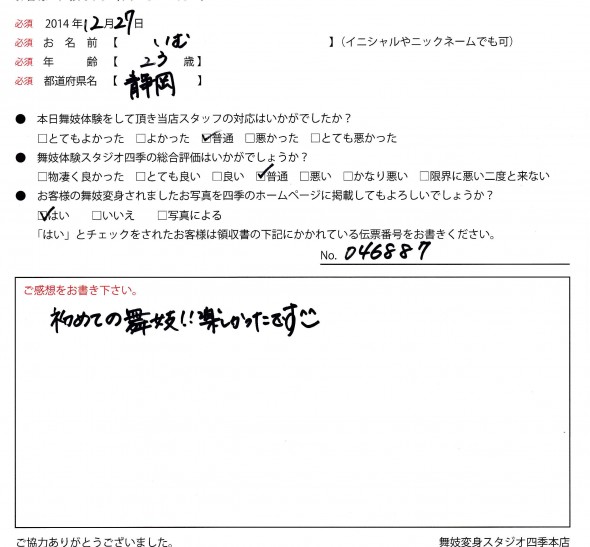 必須 2014 年12月27日
必須 お 名 前 【 いむ 】(イニシャルやニックネームでも可)
必須 年 齢 【 23 歳】
必須 都道府県名 【 静岡 】
● 本日舞妓体験をして頂き当店スタッフの対応はいかがでしたか？
□とてもよかった □よかった ☑普通 □悪かった □とても悪かった
● 舞妓体験スタジオ四季の総合評価はいかがでしょうか？
□物凄く良かった □とても良い □良い ☑普通 □悪い □かなり悪い □限界に悪い二度と来ない
● お客様の舞妓変身されましたお写真を四季のホームページに掲載してもよろしいでしょうか？
☑はい □いいえ □写真による
「はい」とチェックをされたお客様は領収書の下記にかかれている伝票番号をお書きください。
No. 046887
ご感想をお書き下さい。
初めての舞妓!!楽しかったです
ご協力ありがとうございました。 舞妓変身スタジオ四季本店